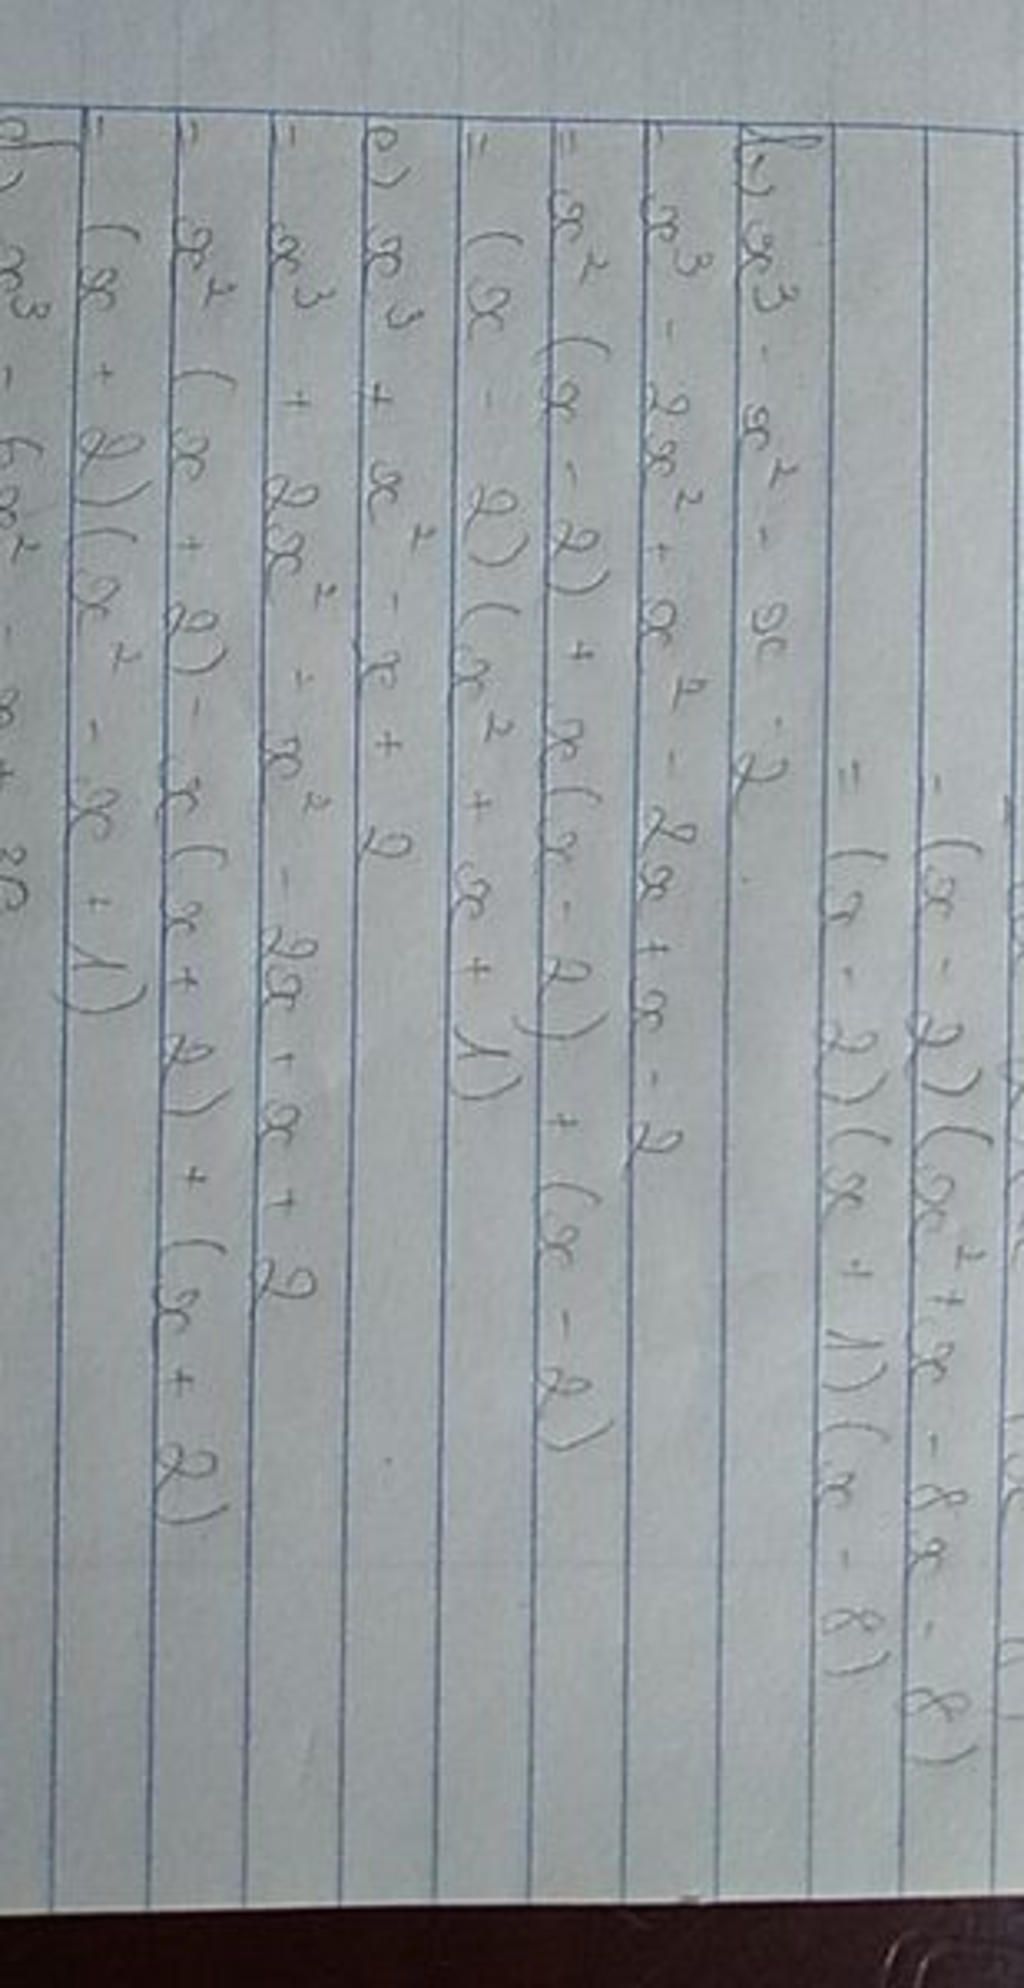 = (x - 2)(x² + x - 8x - 8)
= (x - 2)(x + 1)(x - 8)
b) x³ - x² - x - 2
= x³ - 2x² + x² - 2x + x - 2
= x² (x - 2) + x(x - 2) + (x - 2)
= (x - 2)(x² + x + 1)
c) x³ + x² - x + 2
= x³ + 2x² - x² - 2x + x + 2
= x² (x + 2) - x(x + 2) + (x + 2)
= (x + 2)(x² - x + 1)
d) x³ - 6x² - x + 30